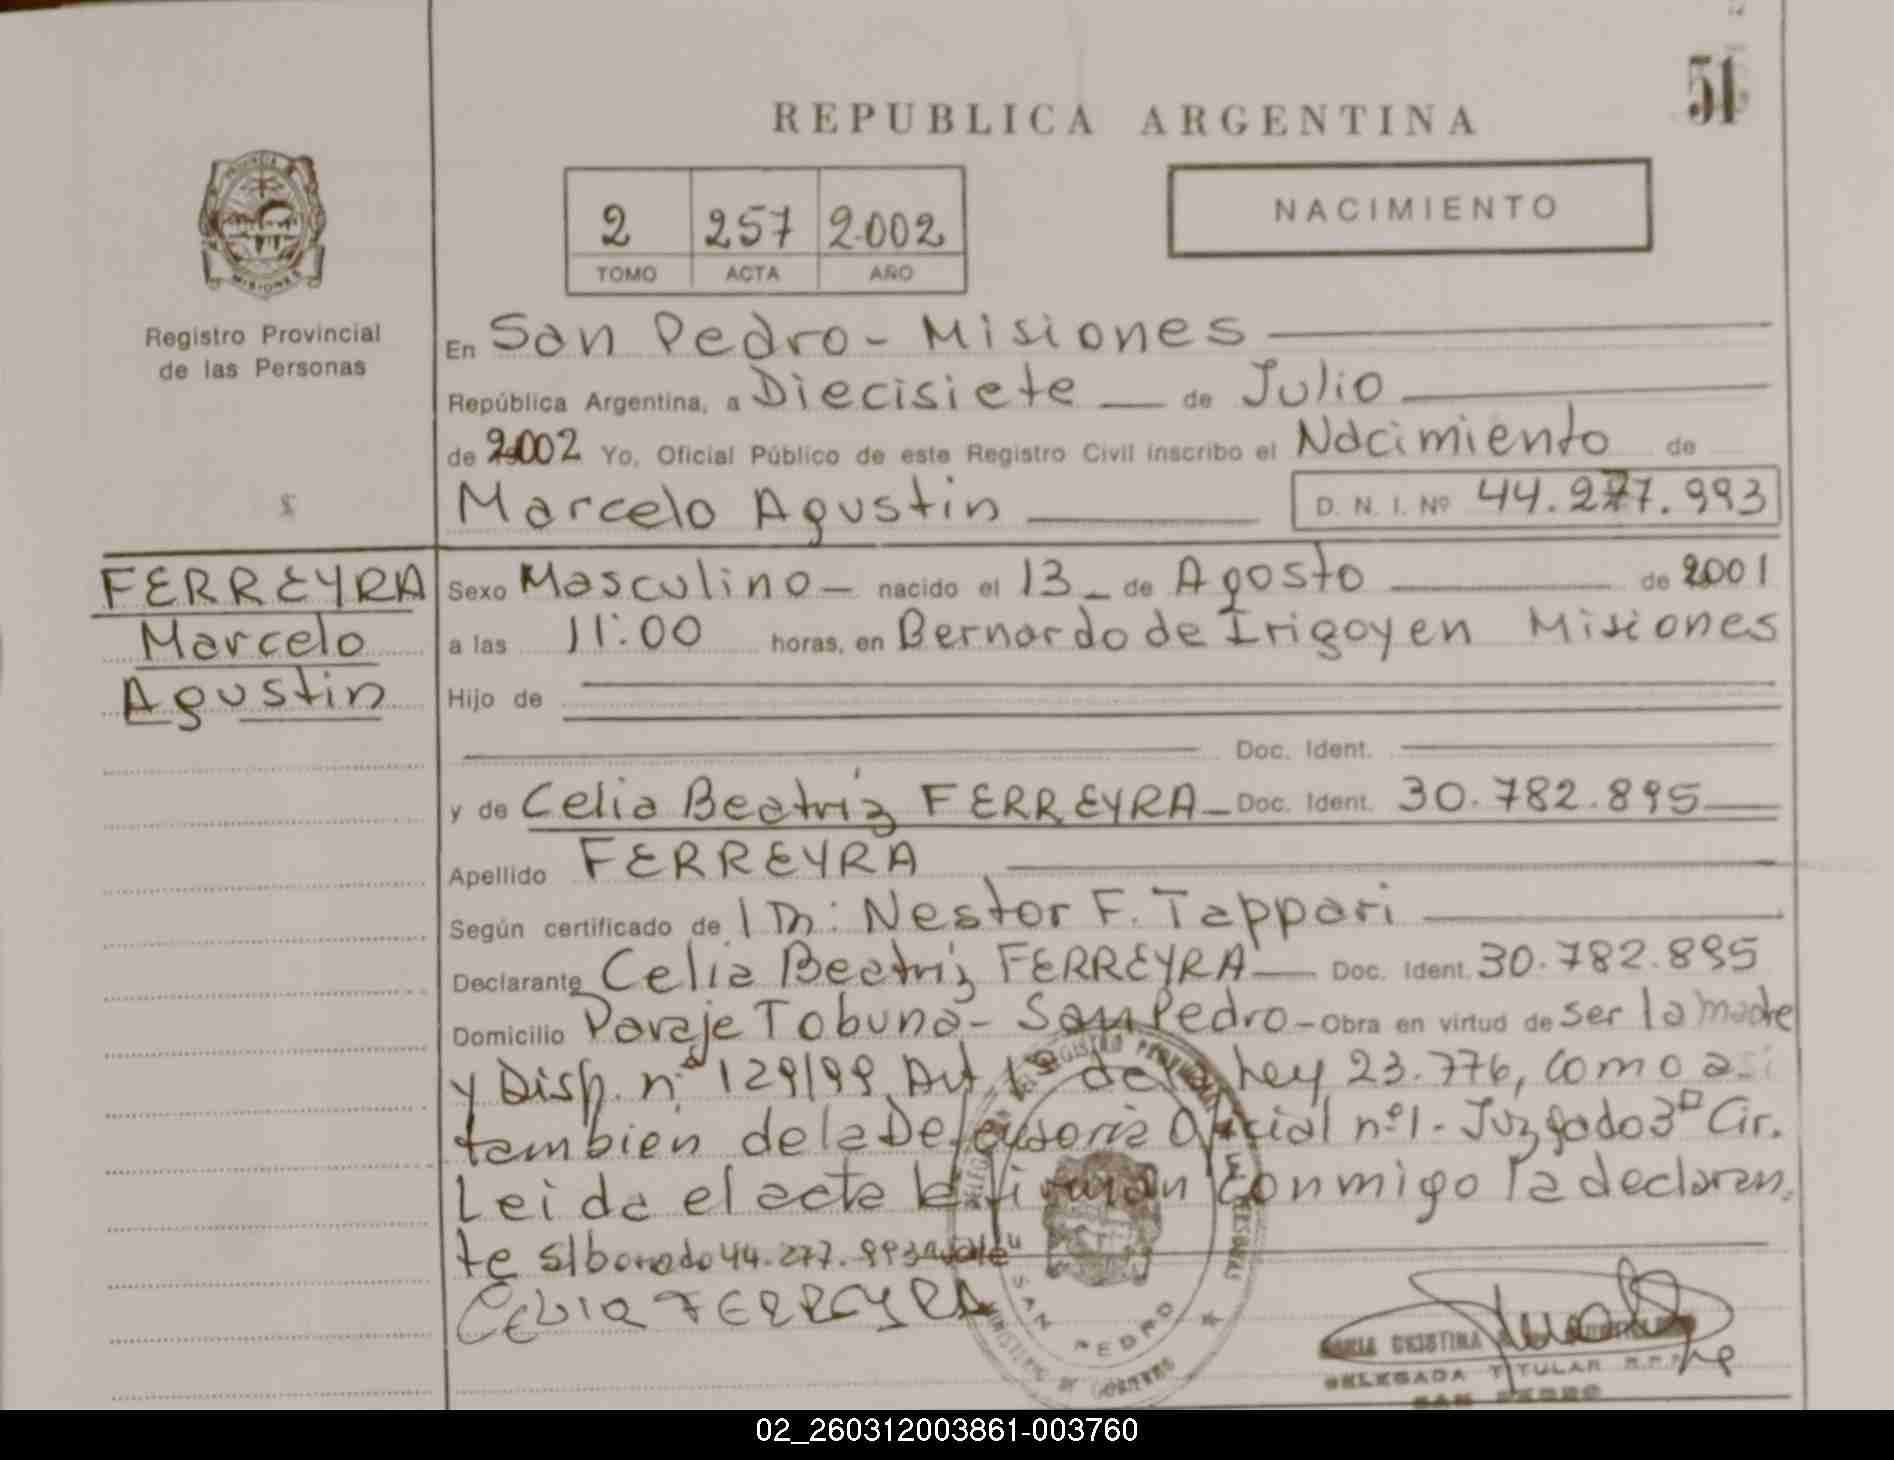 51
REPUBLICA ARGENTINA
2 257 2002
TOMO ACTA AÑO
NACIMIENTO
PROVINCIA
MISIONES
Registro Provincial
de las Personas
En San Pedro - Misiones
República Argentina, a Diecisiete de Julio
de 2002 Yo, Oficial Público de este Registro Civil inscribo el Nacimiento de
Marcelo Agustin D. N. I. Nº 44.277.993
FERREYRA
Marcelo
Agustin
Sexo Masculino - nacido el 13 - de Agosto de 2001
a las 11:00 horas, en Bernardo de Irigoyen Misiones
Hijo de
Doc. Ident.
y de Celia Beatriz FERREYRA - Doc. Ident. 30.782.895
Apellido FERREYRA
Según certificado de Nestor F. Tappari
Declarante Celia Beatriz FERREYRA - Doc. Ident. 30.782.895
Domicilio Paraje Tobuna - San Pedro - Obra en virtud de ser la madre
y Disp. nº 129/99 Art 1º de la Ley 23.776, como asi
tambien de la Defensoria Oficial nº 1 - Juzgado 3º Cir.
Leida el acta la firman conmigo la declaran.
te s/borrado 44.277.993 "vale"
CELIA FERREYRA
SAN PEDRO
MINISTERIO DE GOBIERNO
MARIA CRISTINA
DELEGADA TITULAR R.P.P.
SAN PEDRO
02_260312003861-003760